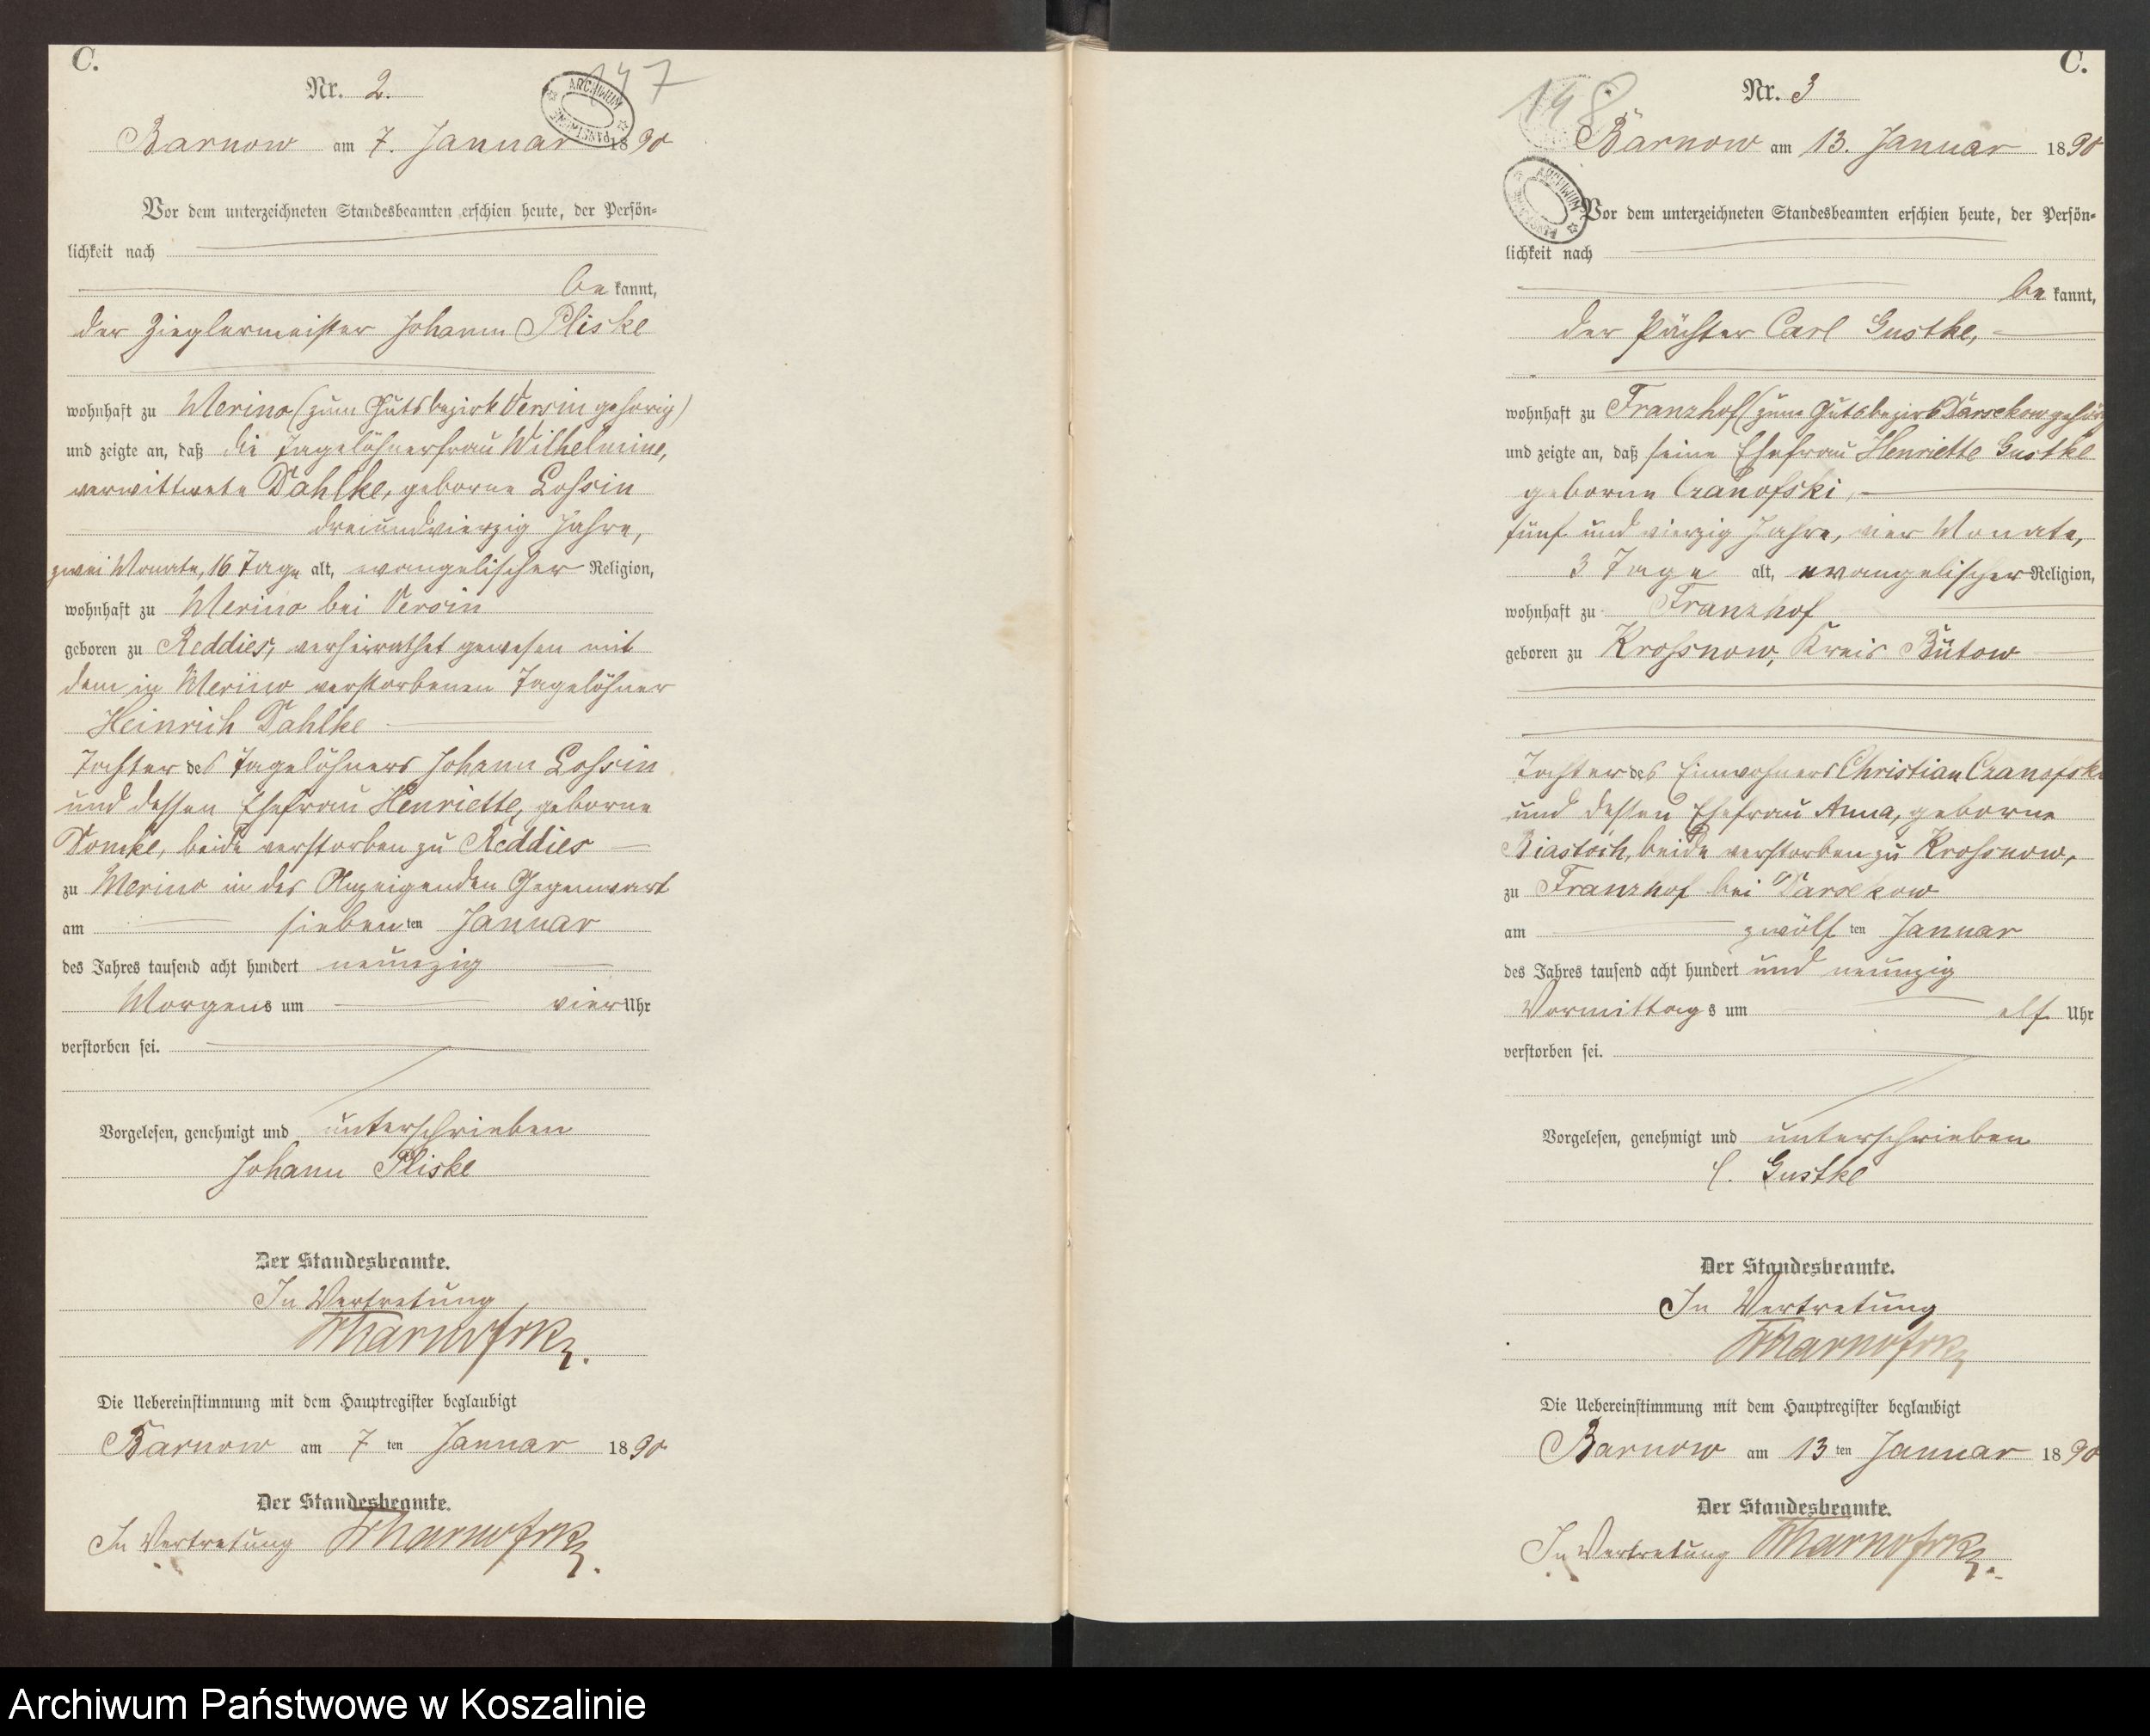 C.
Nr. 2.
147
ARCHIWUM PAŃSTWOWE
Barnow am 7. Januar 1890
Vor dem unterzeichneten Standesbeamten erschien heute, der Persön-
lichkeit nach
be kannt,
der Zieglermeister Johann Pliske
wohnhaft zu Merino (zum Gutsbezirk Versin gehörig)
und zeigte an, daß die Tagelöhnerfrau Wilhelmine,
verwittwete Dahlke, geborne Lossin
dreiundvierzig Jahre,
zwei Monate, 16 Tage alt, evangelischer Religion,
wohnhaft zu Merino bei Versin
geboren zu Reddies, verheirathet gewesen mit
dem in Merino verstorbenen Tagelöhner
Heinrich Dahlke
Tochter des Tagelöhners Johann Lossin
und dessen Ehefrau Henriette, geborne
Domke, beide verstorben zu Reddies
zu Merino in des Anzeigenden Gegenwart
am siebenten Januar
des Jahres tausend acht hundert neunzig
Morgens um vier Uhr
verstorben sei.
Vorgelesen, genehmigt und unterschrieben
Johann Pliske
Der Standesbeamte.
In Vertretung
Die Uebereinstimmung mit dem Hauptregister beglaubigt
Barnow am 7 ten Januar 1890
Der Standesbeamte.
In Vertretung
C.
Nr. 3
148
Barnow am 13. Januar 1890
ARCHIWUM PAŃSTWOWE
Vor dem unterzeichneten Standesbeamten erschien heute, der Persön-
lichkeit nach
be kannt,
der Pächter Carl Gustke,
wohnhaft zu Franzhof (zum Gutsbezirk Darsekow gehörig
und zeigte an, daß seine Ehefrau Henriette Gustke
geborne Czanofski,
fünf und vierzig Jahre, vier Monate,
3 Tage alt, evangelischer Religion,
wohnhaft zu Franzhof
geboren zu Krossnow, Kreis Bütow
Tochter des Einwohners Christian Czanofski
und dessen Ehefrau Anna, geborne
Biastoch, beide verstorben zu Krossnow,
zu Franzhof bei Darsekow
am zwölften Januar
des Jahres tausend acht hundert und neunzig
Vormittags um elf Uhr
verstorben sei.
Vorgelesen, genehmigt und unterschrieben
C. Gustke
Der Standesbeamte.
In Vertretung
Die Uebereinstimmung mit dem Hauptregister beglaubigt
Barnow am 13 ten Januar 1890
Der Standesbeamte.
In Vertretung
Archiwum Państwowe w Koszalinie